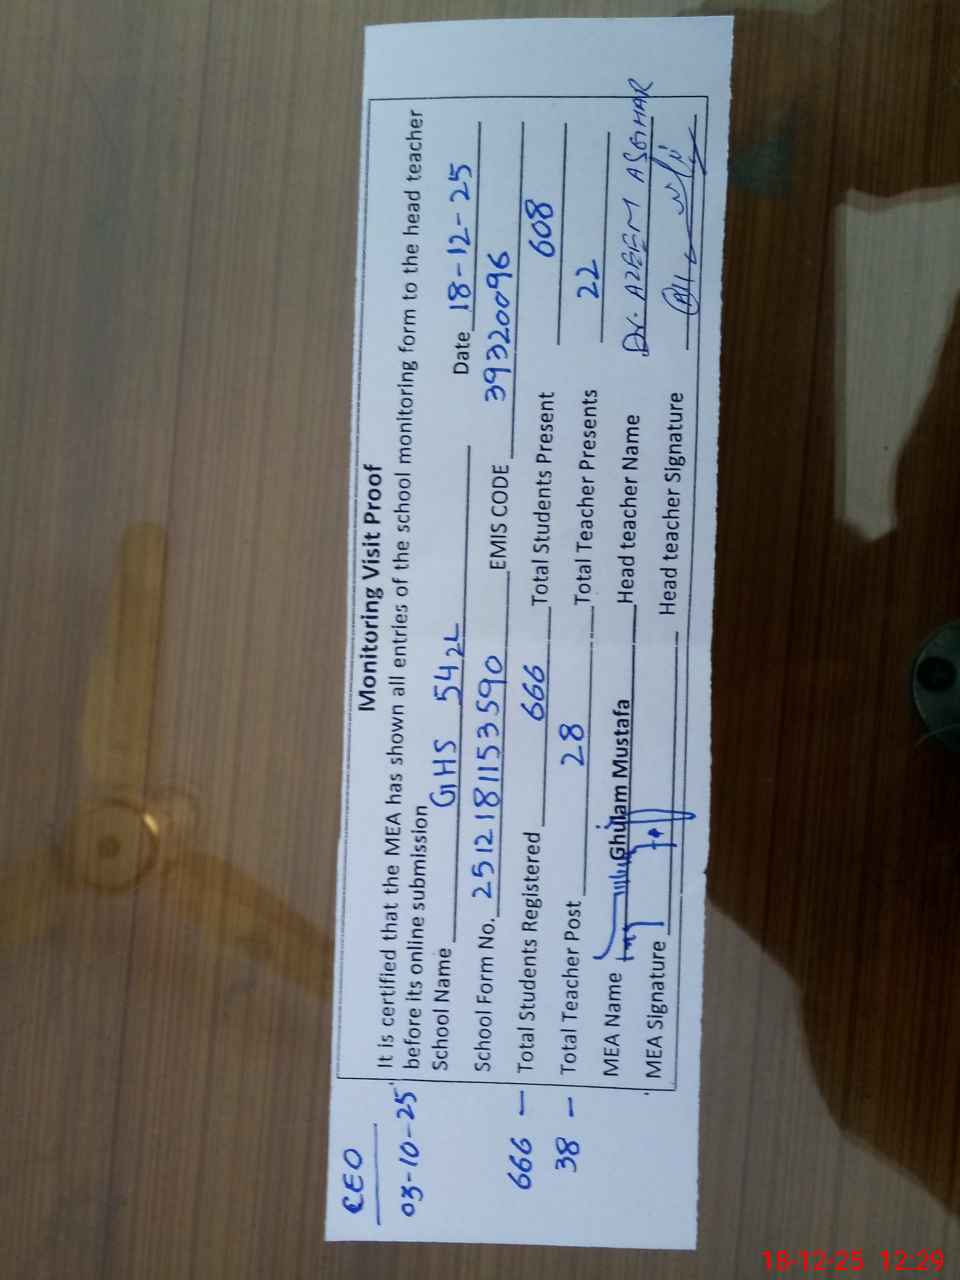 CEO
03-10-25
666 -
38 -
Monitoring Visit Proof
It is certified that the MEA has shown all entries of the school monitoring form to the head teacher
before its online submission
School Name GHS 54 2L Date 18-12-25
School Form No. 2512181153590 EMIS CODE 39320096
Total Students Registered 666 Total Students Present 608
Total Teacher Post 28 Total Teacher Presents 22
MEA Name Ghulam Mustafa Head teacher Name Dr. AZEEM ASGHAR
MEA Signature Head teacher Signature
18-12-25 12:29